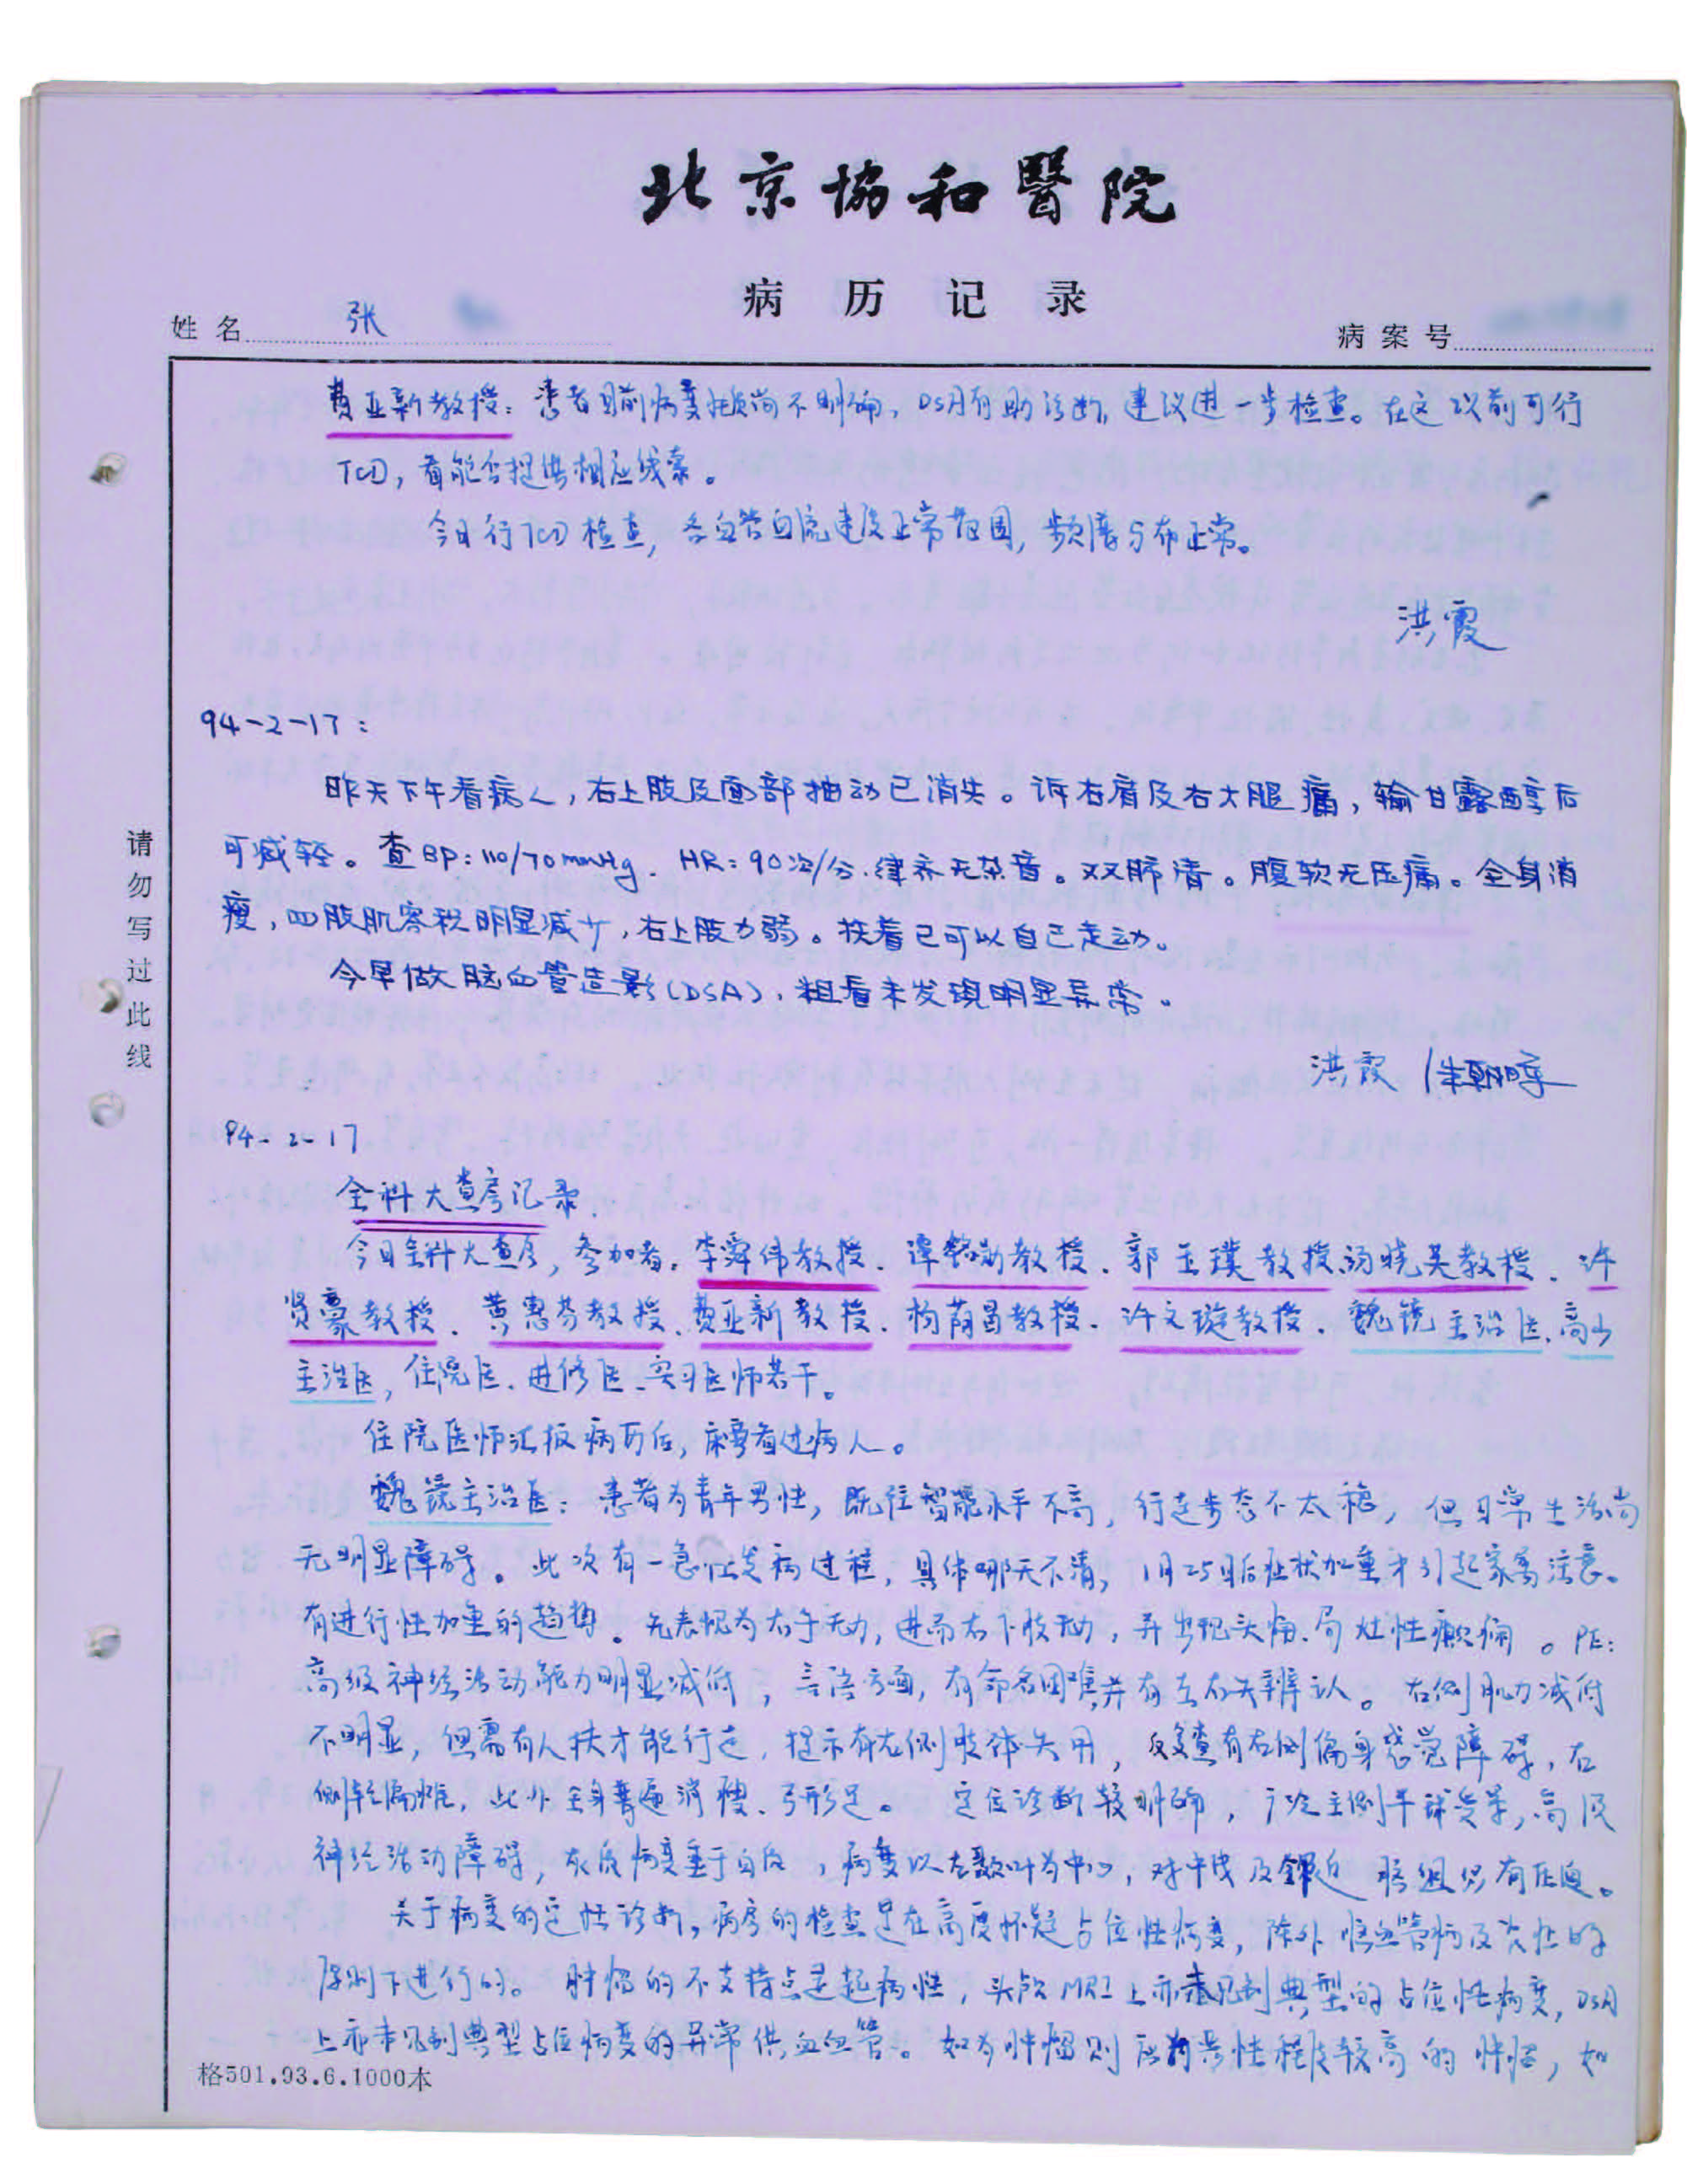 北京協和醫院
病历记录
姓名 张
病案号
费亚新教授：患者目前病变性质尚不明确，DSA有助诊断，建议进一步检查。在这以前可行
TCD，看能否提供相应线索。
今日行TCD检查，各血管血流速度正常范围，频谱分布正常。
洪霞
94-2-17：
昨天下午看病人，右上肢及面部抽动已消失。诉右肩及右大腿痛，输甘露醇后
可减轻。查BP：110/70mmHg．HR：90次/分．律齐无杂音。双肺清。腹软无压痛。全身消
瘦，四肢肌容积明显减少，右上肢力弱。扶着已可以自己走动。
今早做脑血管造影（DSA），粗看未发现明显异常。
洪霞 /
94-2-17
全科大查房记录．
今日全科大查房，参加者：李舜伟教授、谭铭勋教授、郭玉璞教授、汤晓芙教授、许
贤豪教授、黄惠芬教授、费亚新教授、杨荫昌教授、许文璇教授、魏镜主治医、高山
主治医，住院医、进修医、实习医师若干。
住院医师汇报病历后，床旁看过病人。
魏镜主治医：患者为青年男性，既往智能水平不高，行走步态不太稳，但日常生活尚
无明显障碍。此次有一急性发病过程，具体哪天不清，1月25日后症状加重才引起家属注意。
有进行性加重的趋势。先表现为右手无力，进而右下肢无力，并出现头痛、局灶性癫痫。PE：
高级神经活动能力明显减低，言语方面，有命名困难并有左右失辨认。右侧肌力减低
不明显，但需有人扶才能行走，提示有右侧肢体失用，反复查有右侧偏身感觉障碍，右
侧轻偏瘫，此外全身普遍消瘦、弓形足。定位诊断较明确，广泛主侧半球受累，高级
神经活动障碍，灰质病变重于白质，病变以左额叶为中心，对中线及邻近脑组织有压迫。
关于病变的定性诊断，病房的检查是在高度怀疑占位性病变，除外脑血管病及炎性的
原则下进行的。肿瘤的不支持点是起病性，头颅MRI上亦未见到典型的占位性病变，DSA
上亦未见到典型占位病变的异常供血血管。如为肿瘤则应为恶性程度较高的肿瘤，如
请勿写过此线
格501.93.6.1000本